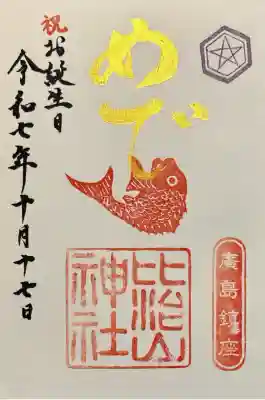 祝お誕生日
令和七年十月十七日
めで
廣島鎮座
比治山
神社